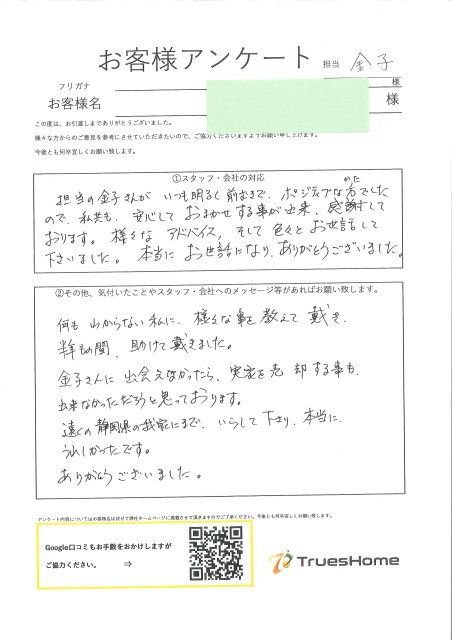 お客様アンケート 担当 金子
フリガナ 様
お客様名 様
この度は、お引渡しまでありがとうございました。
様々な方からのご意見を参考にさせていただきたいので、ご協力くださいますようお願い申し上げます。
今後とも何卒宜しくお願い致します。
①スタッフ・会社の対応
担当の金子さんが いつも明るく 前向きで、ポジティブな方でした
かた
ので、私共も、安心して おまかせする事が出来、感謝して
おります。様々な アドバイス、そして 色々と お世話して
下さいました。本当に お世話になり、ありがとうございました。
②その他、気付いたことやスタッフ・会社へのメッセージ等があればお願い致します。
何も わからない私に、様々な事を教えて 戴き、
半年もの間、助けて 戴きました。
金子さんに 出会えなかったら、実家を売却する事も、
出来なかっただろうと思っております。
遠くの静岡県の我家にまで、いらして下さり、本当に、
うれしかったです。
ありがとうございました。
アンケート内容についてはお客様名は伏せて弊社ホームページに掲載させて頂きますのでご了承ください。今後とも何卒宜しくお願い致します。
Google口コミもお手数をおかけしますが
ご協力ください。 ⇒
TruesHome